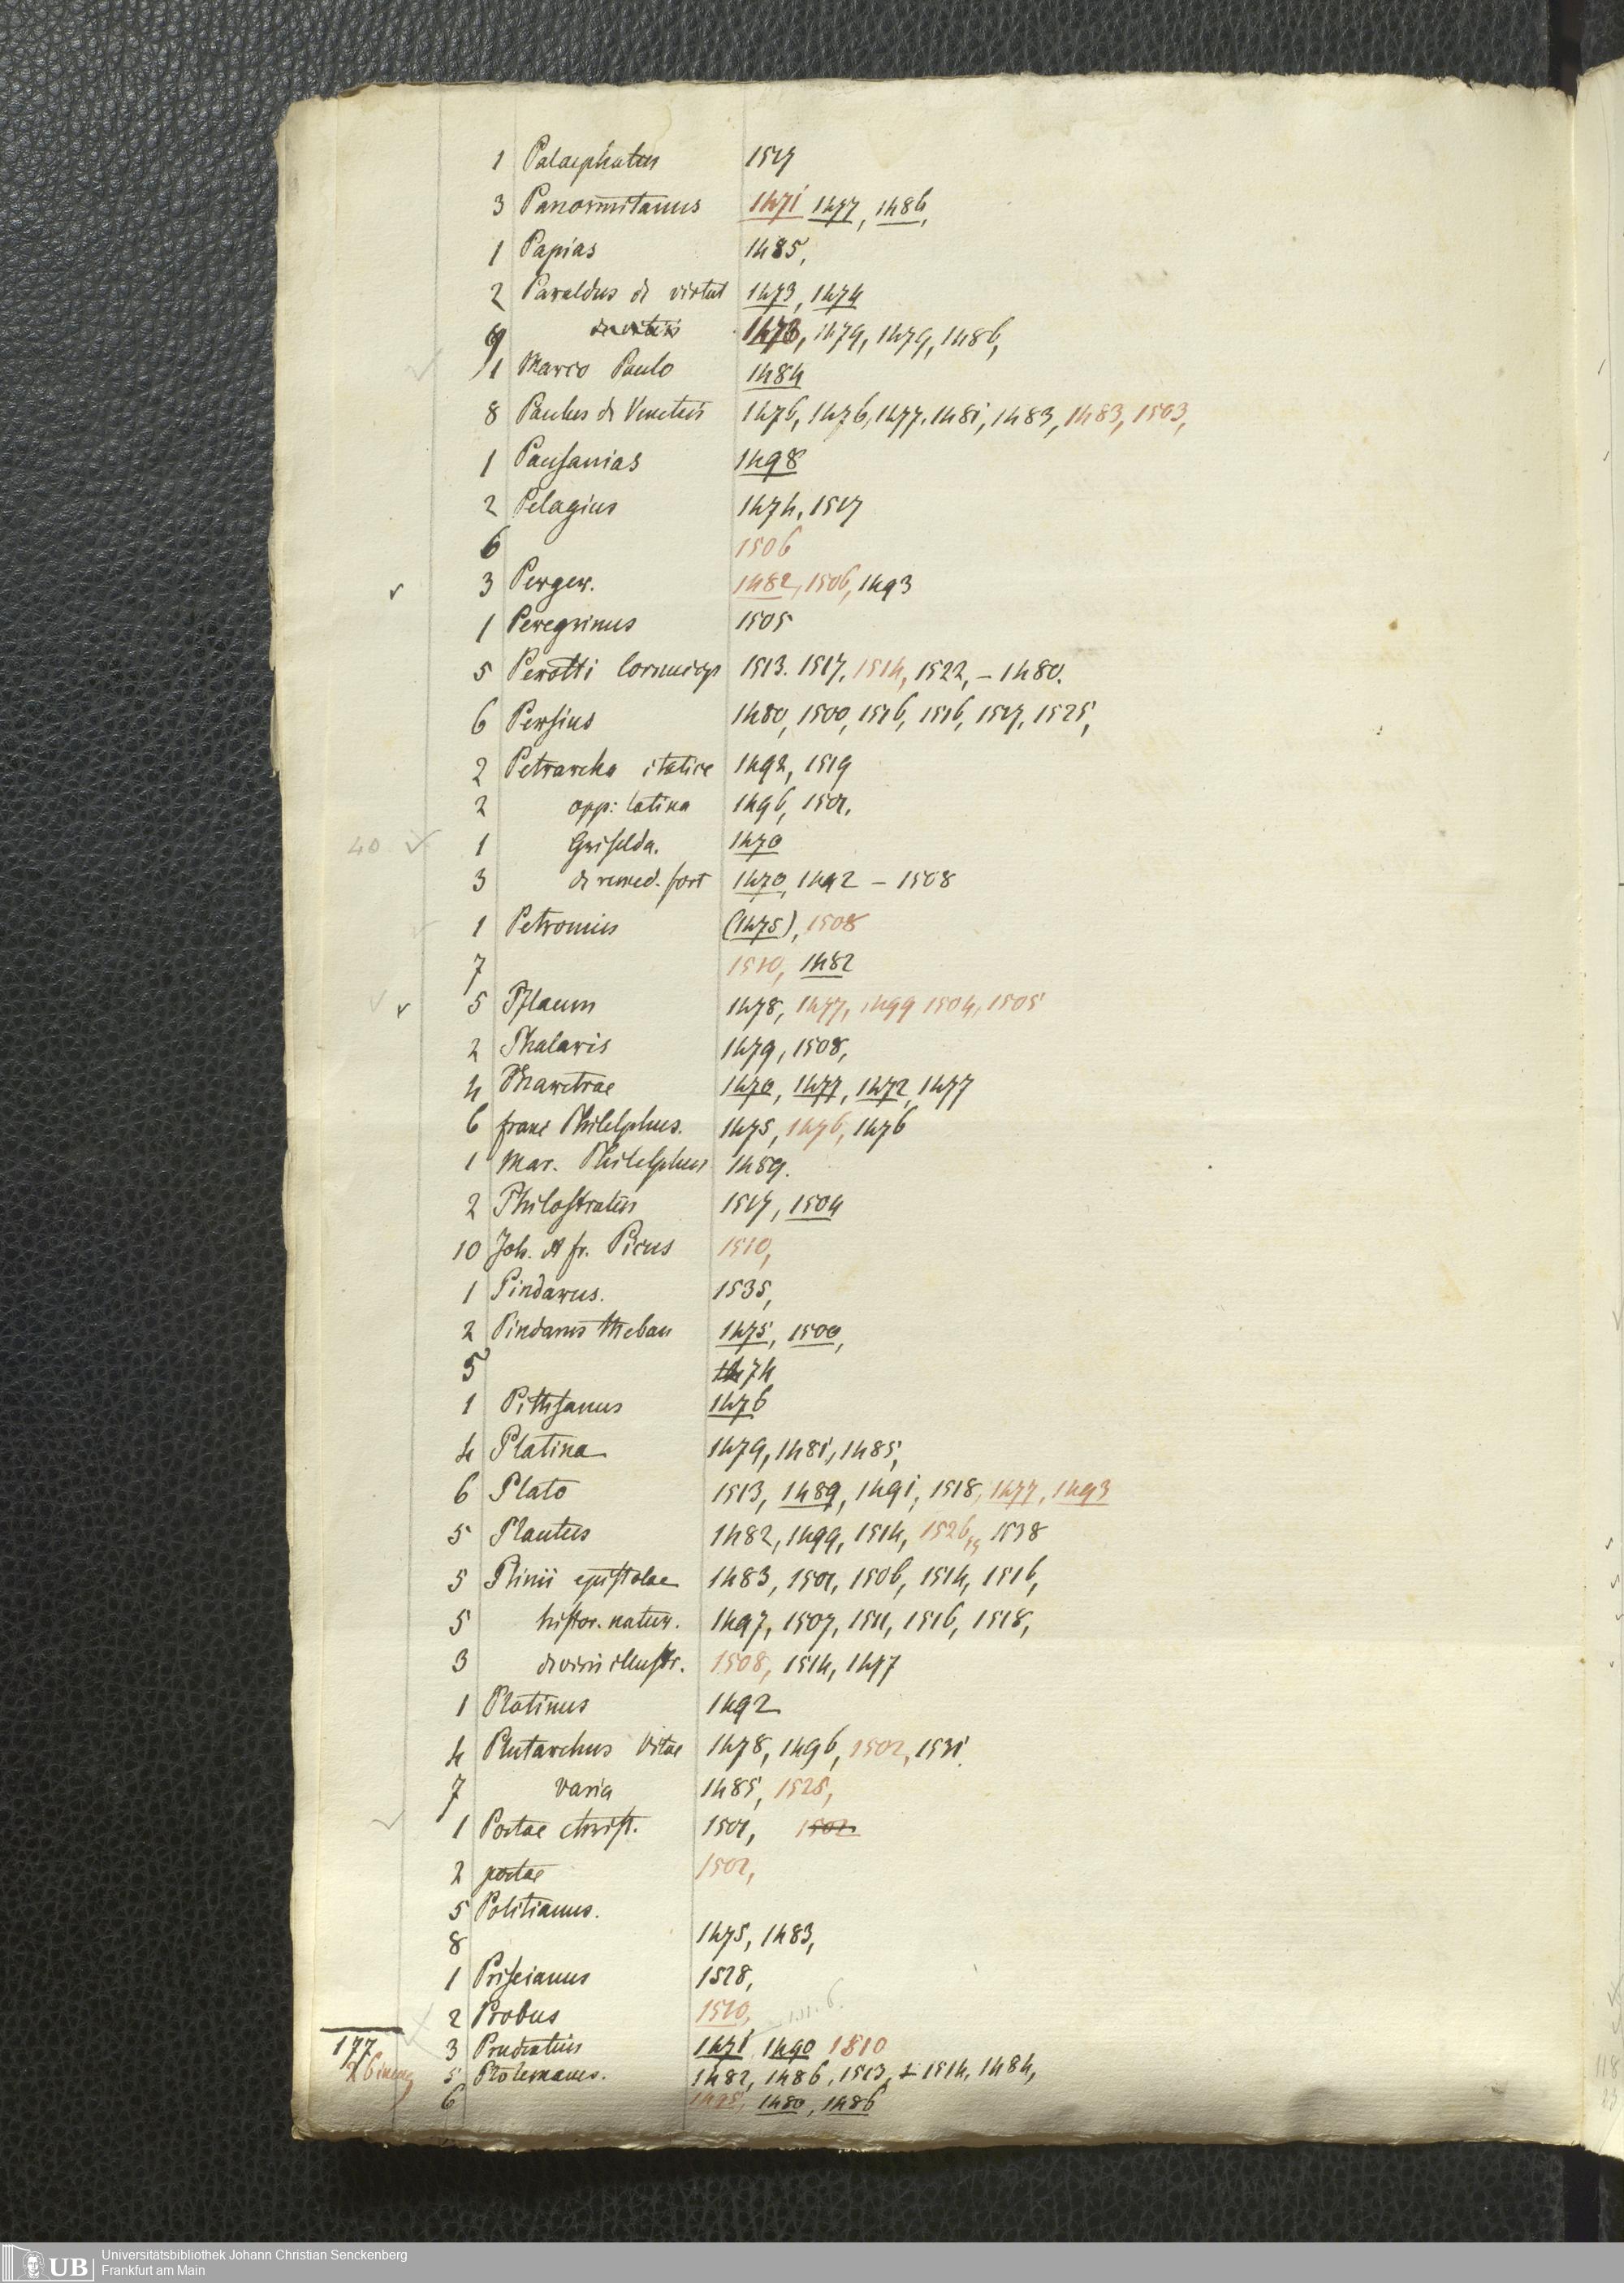 1 Palaephatus 1517
3 Panormitanus 1471 1477, 1486,
1 Papias 1485,
2 Paraldus de virtut 1473, 1474
1479, 1479, 1486,
1 Marco Paulo 1484
8 Paulus de Venetiis 1476, 1476, 1477, 1481, 1483, 1483, 1503,
1 Pausanias 1498
2 Pelagius 1474, 1517
6 1506
3 Perger. 1482, 1506, 1493
1 Peregrinus 1505
5 Perotti cornucop 1513. 1517, 1514, 1522, – 1480.
6 Persius 1480, 1500, 1516, 1516, 1517, 1525,
2 Petrarcha italice 1492, 1519
2 opp: latina 1496, 1501.
40 1 Griselda. 1470
3 de remed. fort 1470, 1492 – 1508
1 Petronius (1475), 1508
7 1510, 1482
5 Pflaum 1478, 1477, 1499 1504, 1505
2 Phalaris 1479, 1508,
4 Pharetrae 1470, 1477, 1472, 1477
6 franc Philelphus. 1475, 1476, 1476
1 Mar. Philelphus 1489.
2 Philostratus 1517, 1504
10 Joh. et fr. Picus 1510,
1 Pindarus. 1535,
2 Pindarus theban 1475, 1500,
5 1474
1 Pithsanus 1476
4 Platina 1479, 1481, 1485,
6 Plato 1513, 1489, 1491, 1518, 1477, 1493
5 Plautus 1482, 1499, 1514, 1526, 1538
5 Plinii epistolae 1483, 1501, 1506, 1514, 1516,
5 histor. natur. 1497, 1507, 1511, 1516, 1518,
3 de viris illustr. 1508, 1514, 1477
1 Plotinus 1492
4 Plutarchus Vitae 1478, 1496, 1502, 1531.
7 varia 1485, 1525,
1 Poetae christ. 1501, 1502
2 poetae 1502,
5 Politianus.
8 1475, 1483,
1 Priscianus 1528,
2 Probus 1510,
177 3 Prudentius 1471 1490 1510
5 Ptolemaeus. 1482, 1486, 1513, + 1514, 1484,
6 1495, 1480, 1486
UB Universitätsbibliothek Johann Christian Senckenberg
Frankfurt am Main